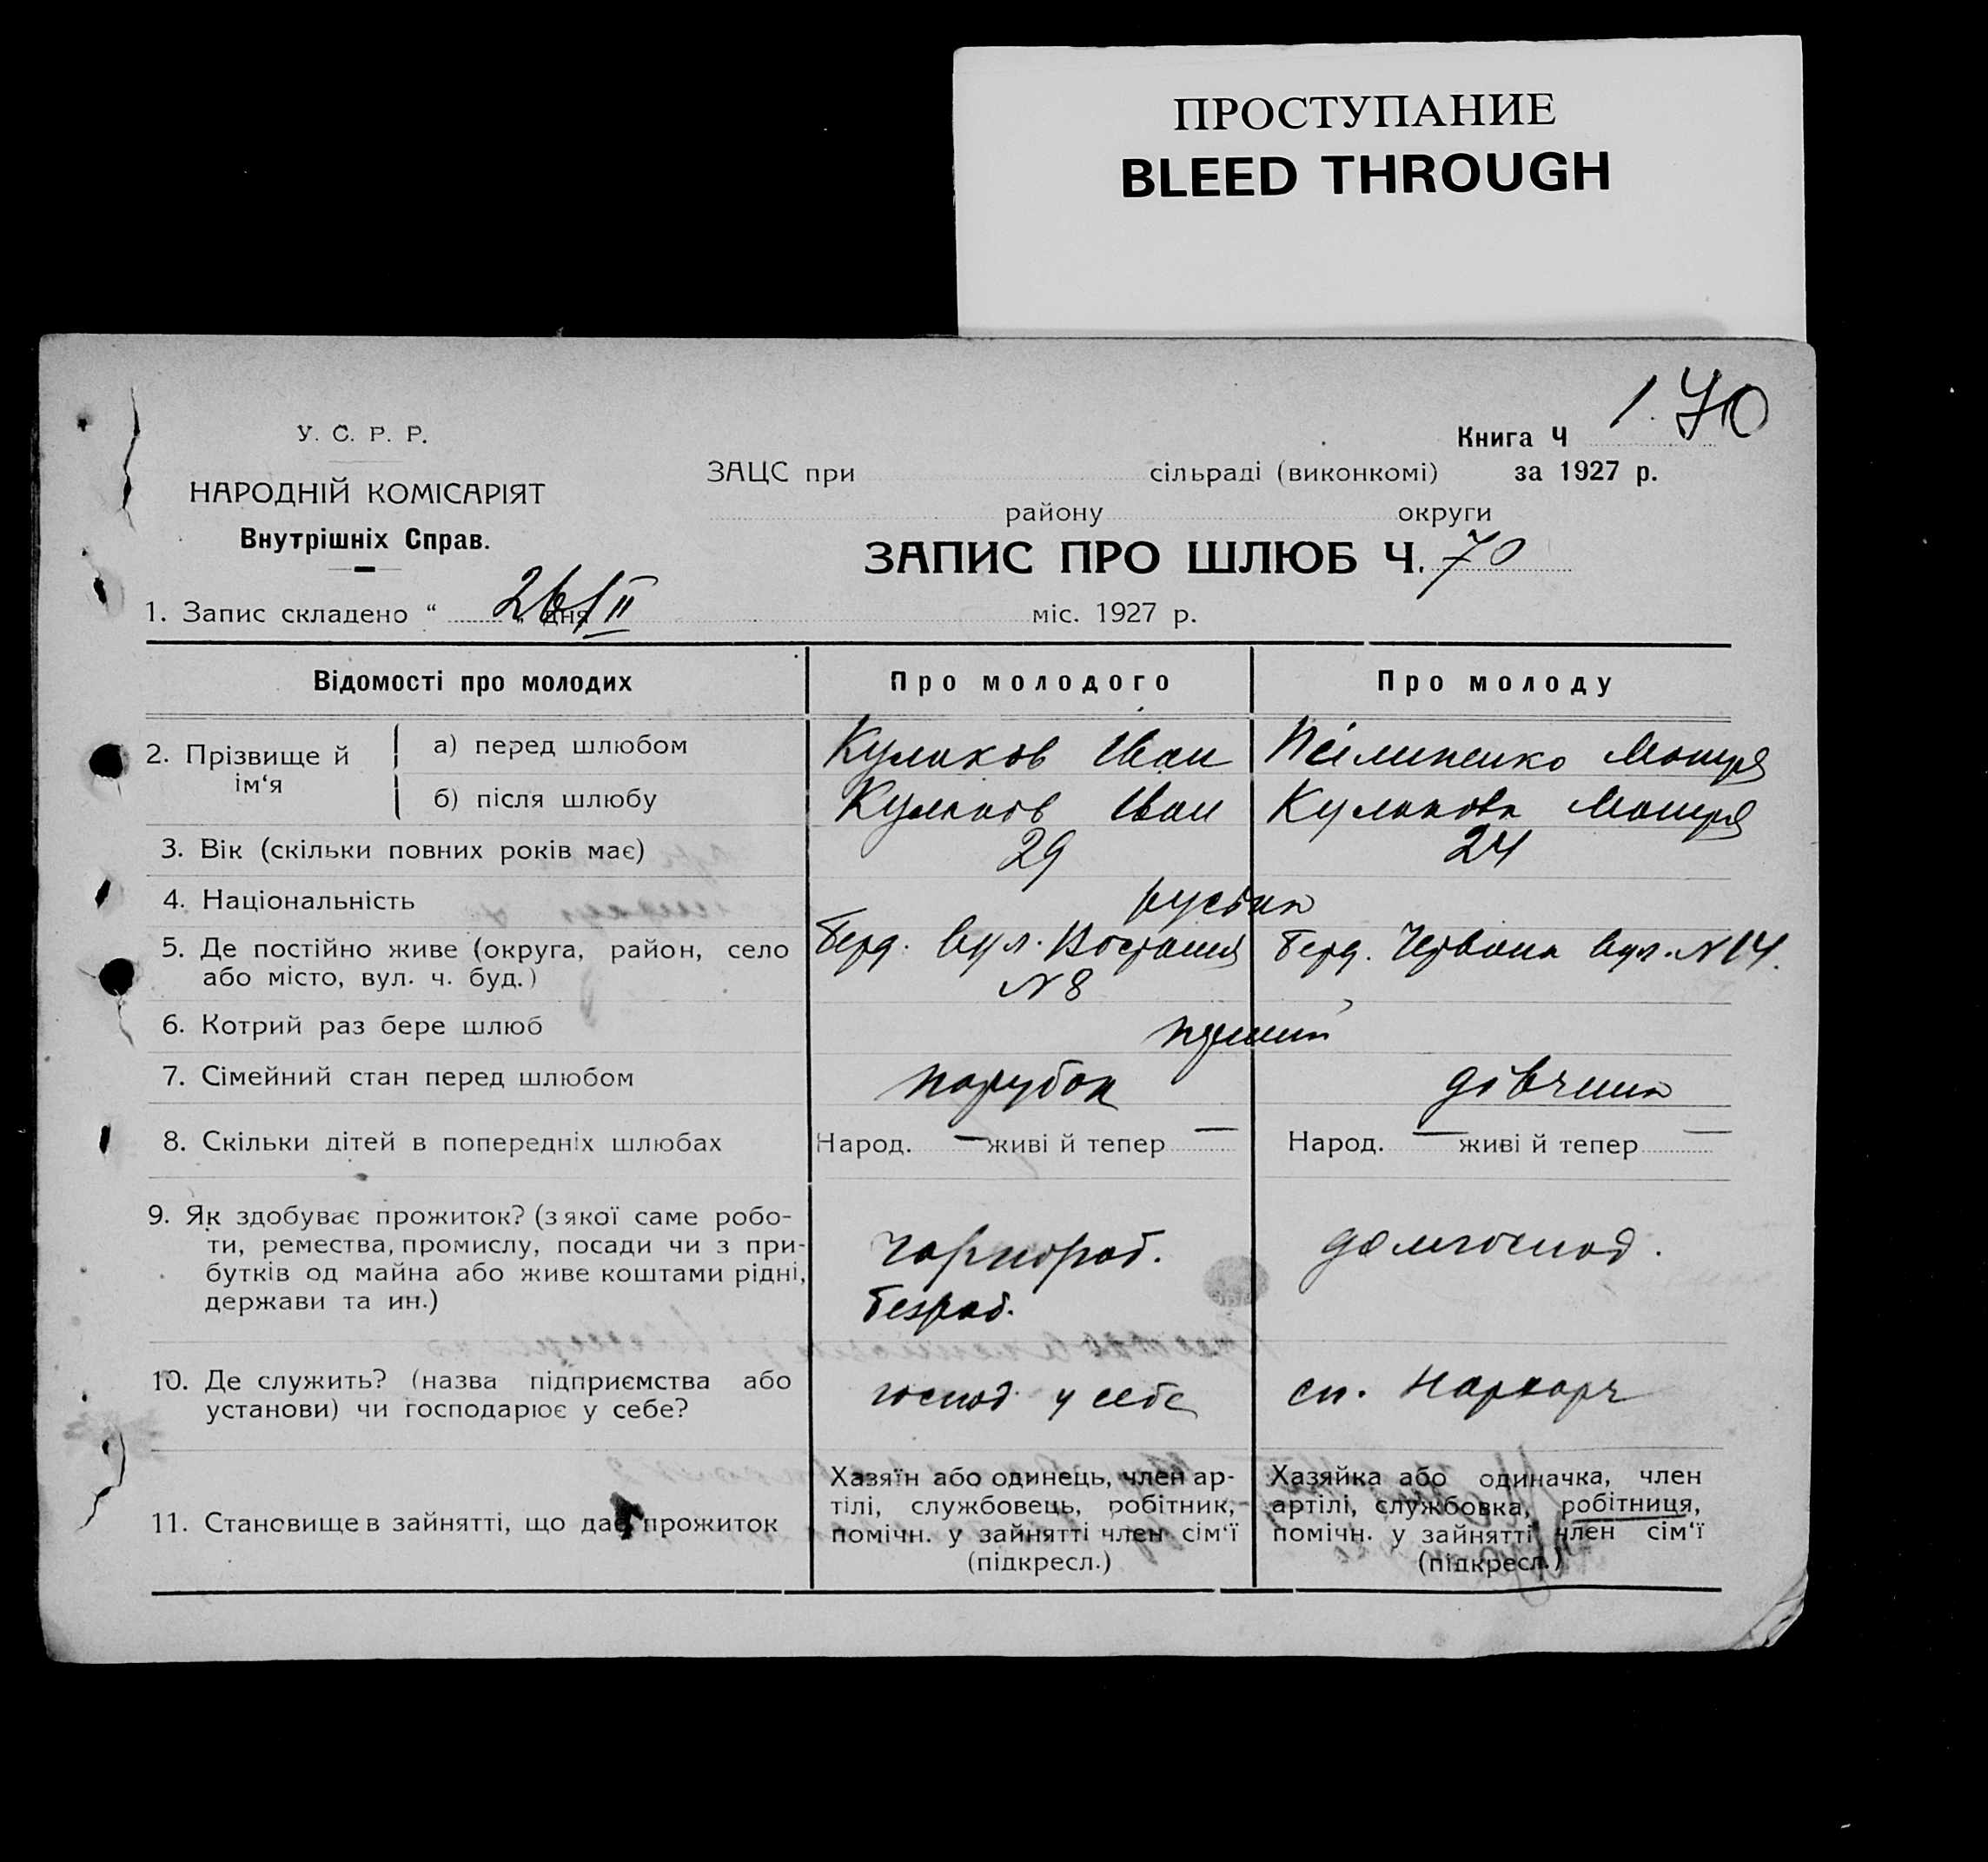 ПРОСТУПАНИЕ
BLEED THROUGH
1. 70
У. С. Р. Р.
НАРОДНІЙ КОМІСАРІЯТ
Внутрішніх Справ.
Книга Ч
ЗАЦС при сільраді (виконкомі) за 1927 р.
району округи
ЗАПИС ПРО ШЛЮБ Ч. 70
1. Запис складено “ 26/II „ дня міс. 1927 р.
Відомості про молодих Про молодого Про молоду
2. Прізвище й ім‘я
а) перед шлюбом Кулаков Іван Пилипенко Мотря
б) після шлюбу Кулаков Іван Кулакова Мотря
3. Вік (скільки повних років має) 29 24
4. Національність
5. Де постійно живе (округа, район, село або місто, вул. ч. буд.) Берд. вул. № 8 Берд. Червона вул. № 14.
6. Котрий раз бере шлюб перший
7. Сімейний стан перед шлюбом парубок дівчина
8. Скільки дітей в попередніх шлюбах Народ. — живі й тепер — Народ. — живі й тепер —
9. Як здобуває прожиток? (з якої саме робо-
ти, ремества, промислу, посади чи з при-
бутків од майна або живе коштами рідні,
держави та ин.)
чорнороб.
безроб.
домгоспод.
10. Де служить? (назва підприємства або
установи) чи господарює у себе?
господ. у себе
сп. Нархарч
11. Становище в зайнятті, що дає прожиток
Хазяїн або одинець, член ар-
тілі, службовець, робітник,
помічн. у зайнятті член сім‘ї
(підкресл.)
Хазяйка або одиначка, член
артілі, службовка, робітниця,
помічн. у зайнятті член сім‘ї
(підкресл.)